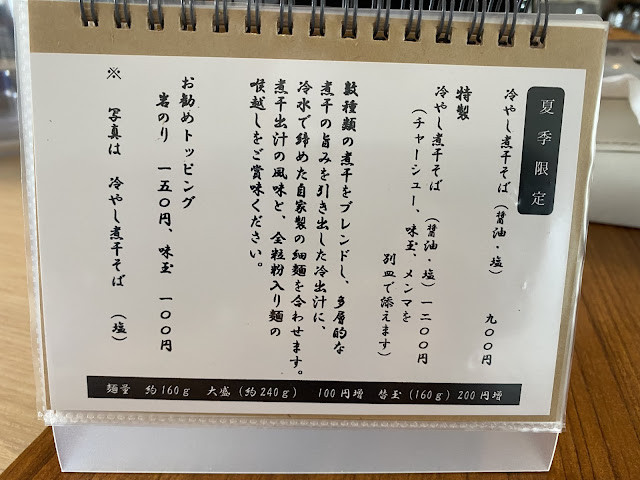 夏季限定
冷やし煮干そば（醤油・塩） 九〇〇円
特製
冷やし煮干そば（醤油・塩）一二〇〇円
（チャーシュー、味玉、メンマを
別皿で添えます）
数種類の煮干をブレンドし、多層的な
煮干の旨みを引き出した冷出汁に、
冷水で締めた自家製の細麺を合わせます。
煮干出汁の風味と、全粒粉入り麺の
喉越しをご賞味ください。
お勧めトッピング
岩のり 一五〇円、味玉 一〇〇円
※ 写真は 冷やし煮干そば （塩）
麺量 約160g 大盛（約240g） 100円増 替玉（160g）200円増